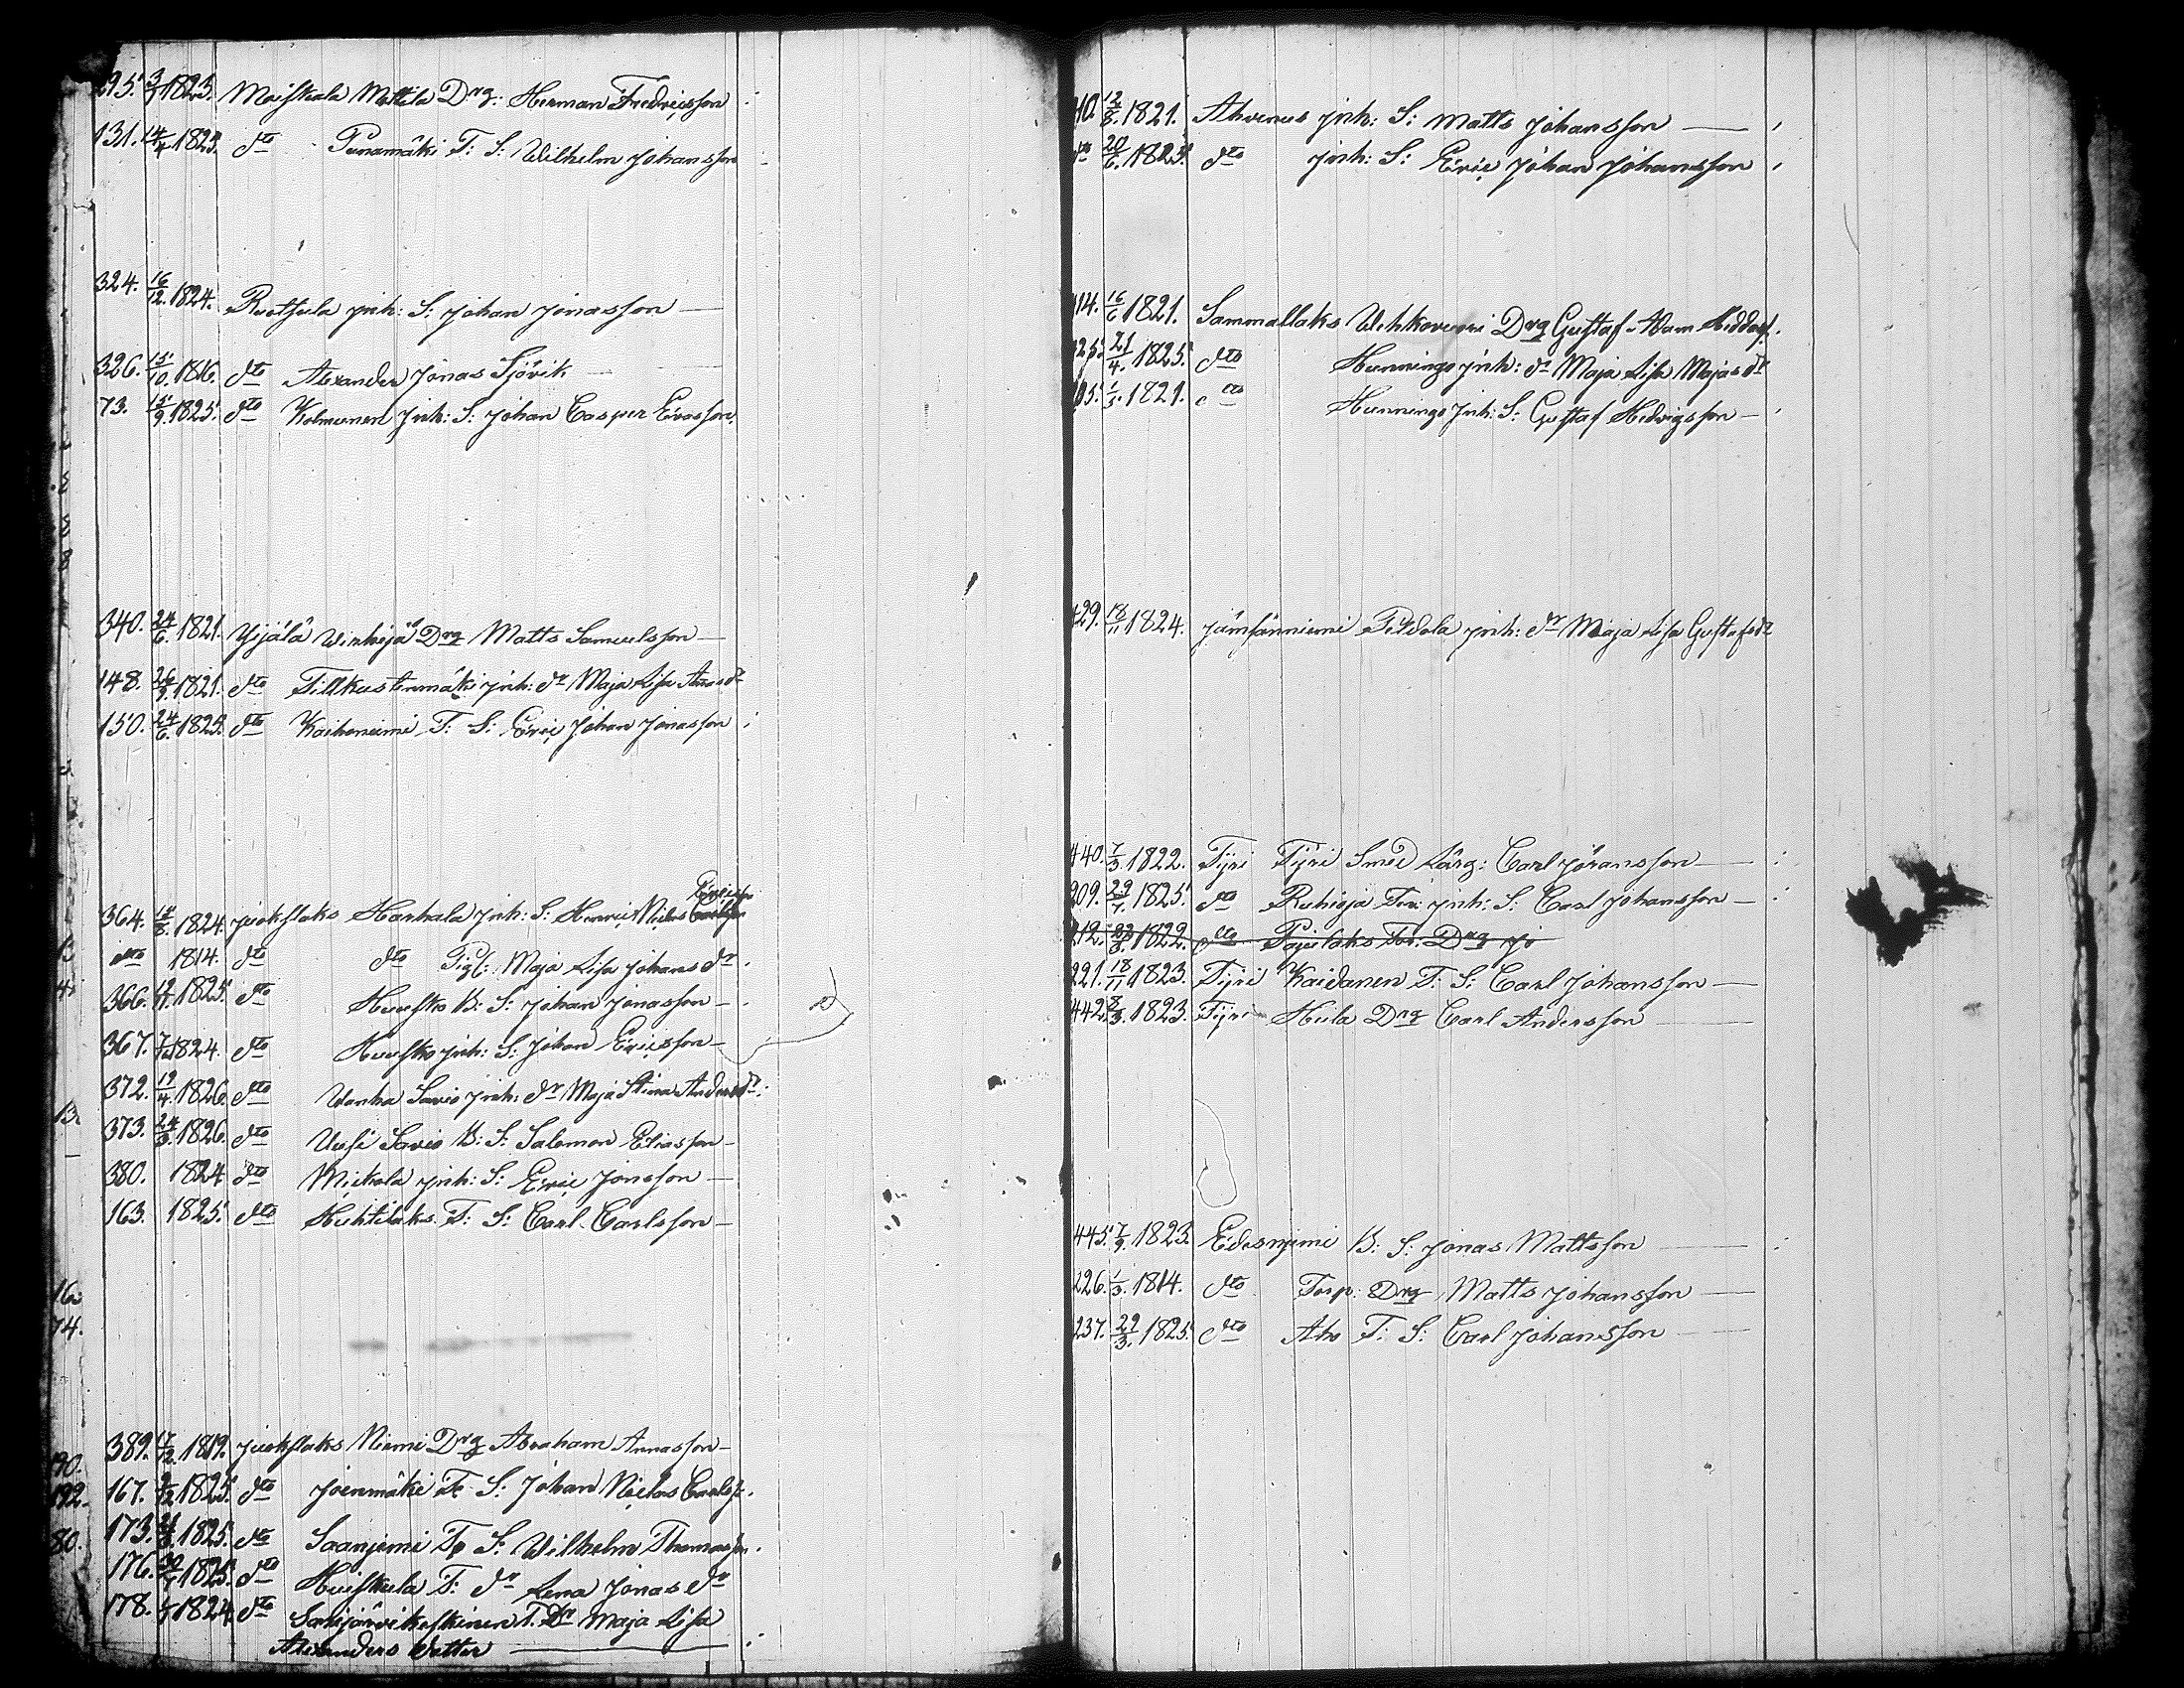 295. 3/7 1823. Moiskala Mattila Drg: Herman Fredricsson
131. 14/4 1823. dto Punamäki T: S: Wilhelm Johansson
324. 16/12. 1824. Ruotsula Inh: S: Johan Jonasson
326. 15/10. 1816. dto Alexander Jonas Sjövik
73. 15/9. 1825. dto Kolmunen Inh: S: Johan Casper Evasson.
340. 24/6. 1821. Yijälä Winhijä Drg Matts Samuelsson
148. 26/9. 1821. dto Tillkustenmäki Inh: dr Maja Lisa Annasdr
150. 24/6. 1825. dto Kaihoniemi T: S: Eric Johan Jonasson
Ericsson
364. 1824. Juokslaks Harhala Inh: S: Henric Niclas Carlsson
dto 1814. dto dto Pig: Maja Lisa Johansdr.
366. 1825. dto Huusko B: S: Johan Jonasson
367. 1824. dto Huusko Inh: S: Johan Ericsson
372. 19/4. 1826. dto Wanha Savio Inh: dr Maja Stina Andersdr:
373. 24/3. 1826. dto Uusi Savio B: S: Salomon Eliasson
380. 1824 dto Mickola Inh: S: Eric Jonsson
163. 1825. dto Huhtilaks T: S: Carl Carlsson
389. 17/12. 1819. Juokslaks Niemi Drg Abraham Annasson
167. 1825. dto Joenmäki T: S: Johan Niclas Carlss.
173. 1825. dto Saaniemi Tp S: Wilhelm Thomasson.
176. 1825. dto Huiskula T: dr Lena Jonasdr
178. 1824 dto Saarijärvikeskinen T. Dr Maja Lisa
Alexanders Dotter
410. 12/8. 1821. Ahvenus Inh: S: Matts Johansson
dto 20/6. 1825. dto Inh: S: Eric Johan Johansson
414. 16/6. 1821. Sammallaks Wehkovuori Drg Gustaf Adam
425. 21/4. 1825. dto Hunningo Inh: dr Maja Lisa Majasdr
195. 1/3. 1821. dto Hunningo Inh: S: Gustaf Hedvigsson
429. 18/11 1824. Jämsänniemi Peldola Inh: dr Maja Lisa Gustafsdr
440. 7/3. 1822. Tyri Tyri Smed Lärg: Carl Göransson
209. 29/7. 1825. dto Ruhioja Tor: Inh: S: Carl Johansson
212. 1822. dto Pajulaks Tor: Drg Jo
221. 18/11 1823. Tyri Kaidanen T: S: Carl Johansson
442. 8/3. 1823. Tyri Hula Drg Carl Andersson
445. 7/9. 1823. Edesniemi B: S: Jonas Mattsson
226. 1/3. 1814. dto Torp: Drg Matts Johansson
237. 29/3. 1825. dto Aho T: S: Carl Johansson